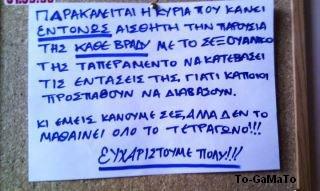 ΠΑΡΑΚΑΛΕΙΤΑΙ Η ΚΥΡΙΑ ΠΟΥ ΚΑΝΕΙ
ΕΝΤΟΝΩΣ ΑΙΣΘΗΤΗ ΤΗΝ ΠΑΡΟΥΣΙΑ
ΤΗΣ ΚΑΘΕ ΒΡΑΔΥ ΜΕ ΤΟ ΣΕΞΟΥΑΛΙΚΟ
ΤΗΣ ΤΑΠΕΡΑΜΕΝΤΟ ΝΑ ΚΑΤΕΒΑΣΕΙ
ΤΙΣ ΕΝΤΑΣΕΙΣ ΤΗΣ, ΓΙΑΤΙ ΚΑΠΟΙΟΙ
ΠΡΟΣΠΑΘΟΥΝ ΝΑ ΔΙΑΒΑΣΟΥΝ.
ΚΙ ΕΜΕΙΣ ΚΑΝΟΥΜΕ ΣΕΞ, ΑΛΛΑ ΔΕΝ ΤΟ
ΜΑΘΑΙΝΕΙ ΟΛΟ ΤΟ ΤΕΤΡΑΓΩΝΟ!!!
ΕΥΧΑΡΙΣΤΟΥΜΕ ΠΟΛΥ!!!
To-GaMaTo